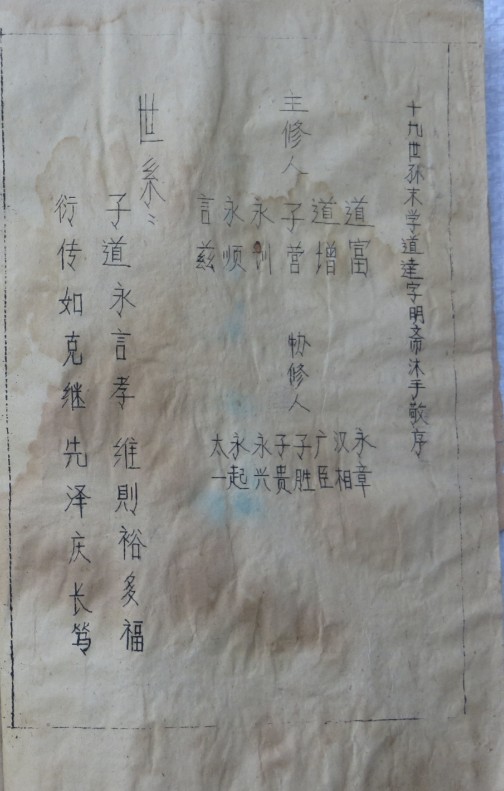 十九世孫末学道達字明斋沐手敬序
主修人
道富
道增
子营
永
永顺
言兹
协修人
永章
汉相
广臣
子胜
子贵
永兴
永起
太一
世系：
子道永言孝 維則裕多福
衍传如克继 先泽庆长笃